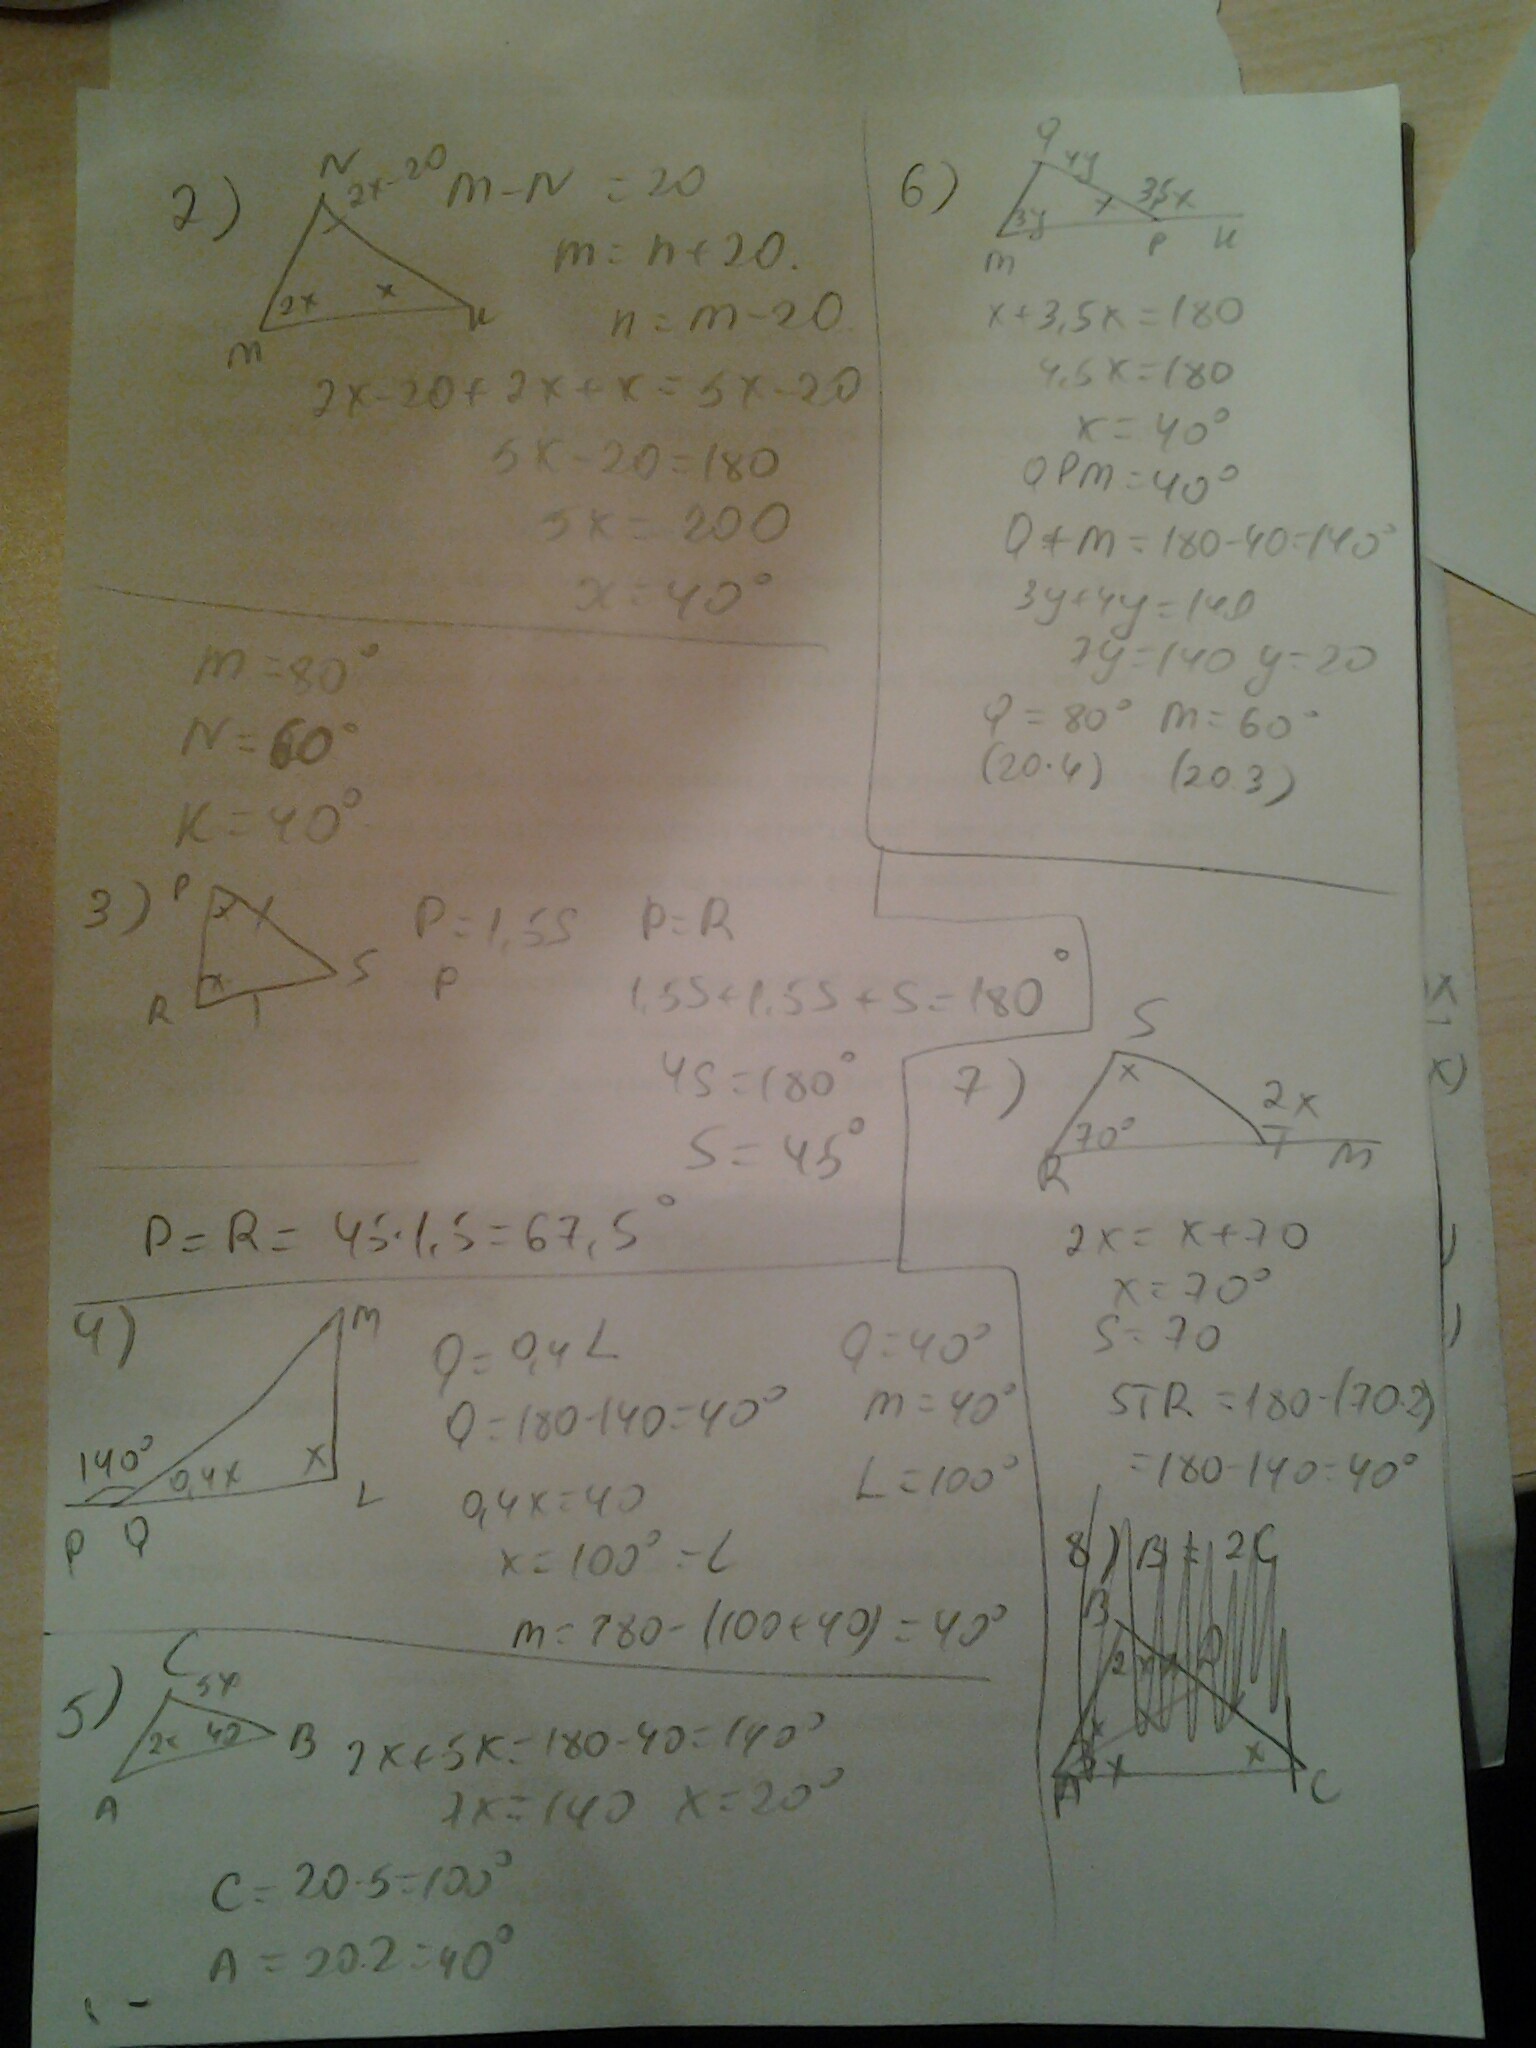 2) N 2x-20 m-N = 20
m = n+20.
2x x n = m-20
M K
2x-20+2x+x = 5x-20
5x-20=180
5x = 200
x = 40°
m = 80°
N = 60°
K = 40°
3) P x P = 1,5S P = R
R x S P
1,5S+1,5S+S=180°
4S=180°
S = 45°
P = R = 45·1,5 = 67,5°
4) M
Q = 0,4L Q = 40°
Q = 180-140=40° m = 40°
140° 0,4x x L = 100°
P Q L 0,4x=40
x = 100° = L
m = 180-(100+40) = 40°
5) C 5x
2x 40 B 2x+5x=180-40=140°
A 7x=140 x=20°
C = 20·5=100°
A = 20·2=40°
6) Q 4y
3y x 3,5x
M P K
x+3,5x=180
4,5x=180
x = 40°
QPM=40°
Q+M=180-40=140°
3y+4y=140
7y=140 y=20
Q = 80° M = 60°
(20·4) (20·3)
7) S
x 2x
70°
R T M
2x = x+70
x = 70°
S = 70
STR = 180-(70·2)
=180-140=40°
8) B = 2C
B D
2 x
x
x x
A C